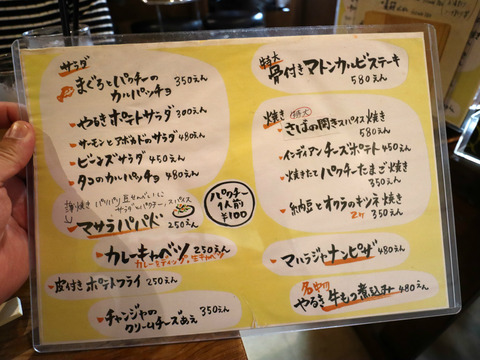 サラダ
まぐろとパクチーの
カルパッチョ 350えん
やるきポテトサラダ 300えん
サーモンとアボカドのサラダ 480えん
ビーンズサラダ 450えん
タコのカルパッチョ 480えん
サラダとパクチー、スパイス
マサラパパド 250えん
カレーキャベツ 250えん
カレーディップ。生キャベツ
皮付きポテトフライ 250えん
チャンジャの
クリームチーズあえ 350えん
パクチー
1人前
¥100
特大
骨付きマトンカルビステーキ
580えん
焼き
特大
さばの開きスパイス焼き
580えん
インディアンチーズポテト 450えん
焼きたてパクチーたまご焼き
350えん
納豆とオクラのキツネ焼き
2ケ 350えん
マハラジャナンピザ 480えん
名物
やるき牛もつ煮込み 480えん